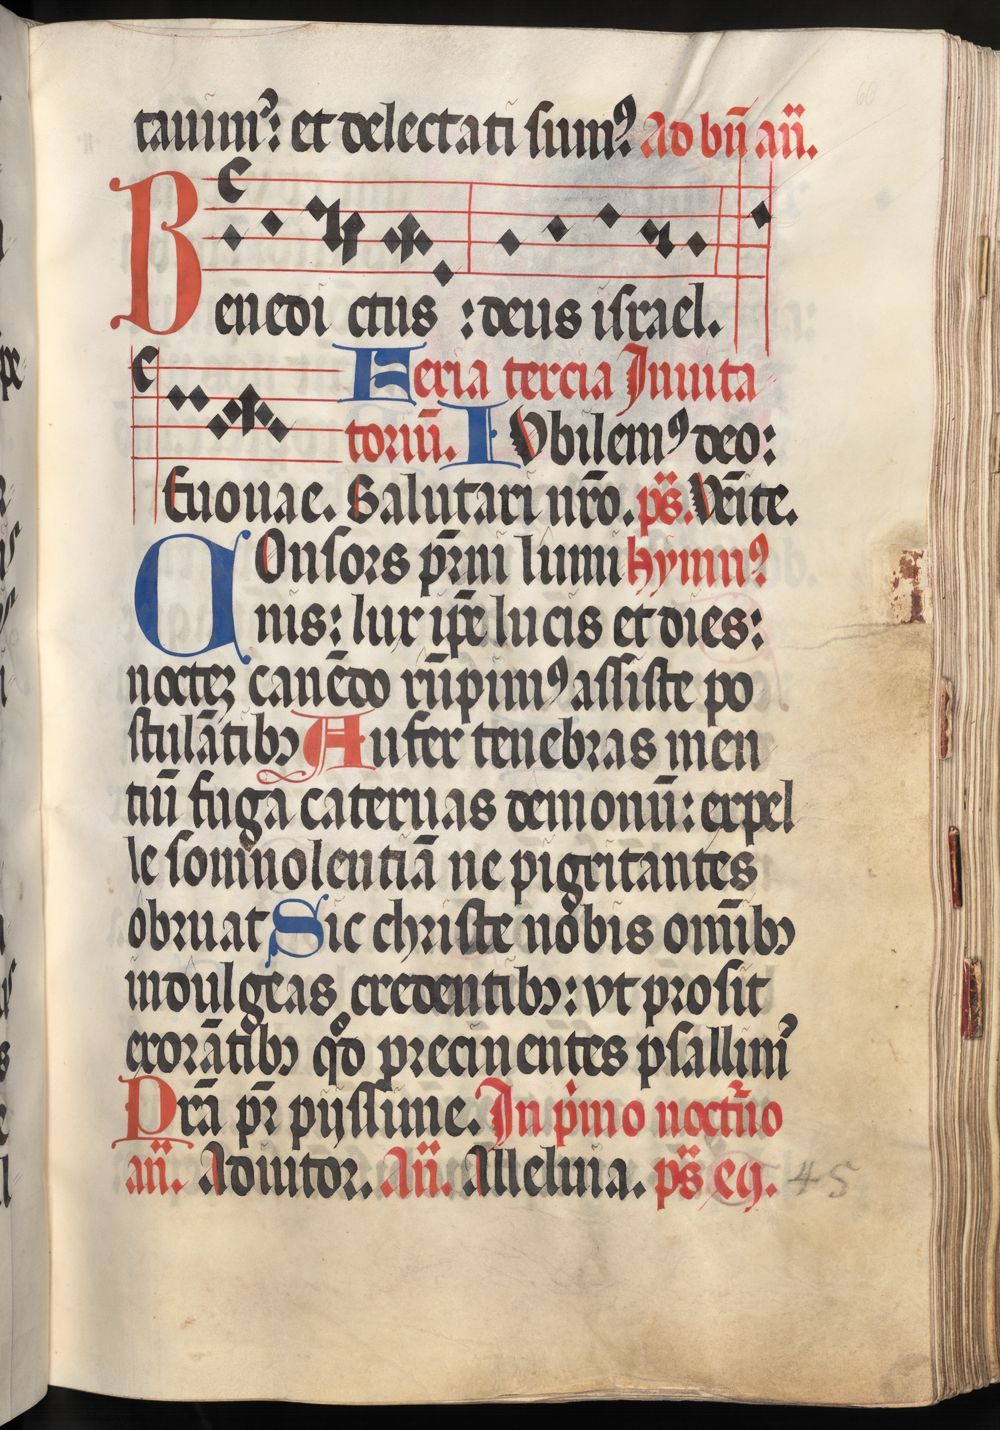 tauimꝰ: et delectati sumꝰ Ad bñ añ.
Benedi ctus : deus israel.
Feria tercia Inuita
toriū. IVbilemꝰ deo:
Euouae. Salutari nr̄o. ps̄. Venīte.
COnsors pr̄ni lumi hymnꝰ
nis: lux ip̄e lucis et dies:
noctez canēdo rūpimꝰ assiste po
stulātibꝫ Aufer tenebras men
tiū fuga cateruas demonū: expel
le somnolentiā ne pigritantes
obruat Sic christe nobis oīmbꝫ
indulgeas credentibꝫ: vt prosit
exorātibꝫ qd̄ precinentes psallimꝰ
Pr̄ā pr̄ pijssime. In pimo noctūo
añ. Adiutor. Añ. Alleluia. ps̄ eq. 45